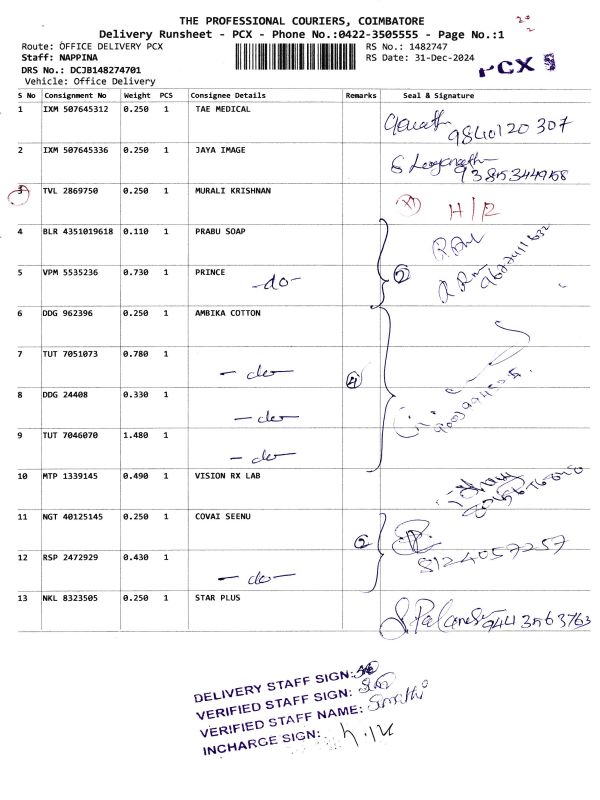 THE PROFESSIONAL COURIERS, COIMBATORE
Delivery Runsheet - PCX - Phone No.:0422-3505555 - Page No.:1
Route: OFFICE DELIVERY PCX
RS No.: 1482747
Staff: NAPPINA
RS Date: 31-Dec-2024
DRS No.: DCJB148274701
Vehicle: Office Delivery
PCX
S No Consignment No Weight PCS Consignee Details Remarks Seal & Signature
1 IXM 507645312 0.250 1 TAE MEDICAL 9840120307
2 IXM 507645336 0.250 1 JAYA IMAGE
3 TVL 2869750 0.250 1 MURALI KRISHNAN H/R
4 BLR 4351019618 0.110 1 PRABU SOAP
5 VPM 5535236 0.730 1 PRINCE -do- 2
6 DDG 962396 0.250 1 AMBIKA COTTON
7 TUT 7051073 0.780 1 - do - 4
8 DDG 24408 0.330 1 - do -
9 TUT 7046070 1.480 1 - do -
10 MTP 1339145 0.490 1 VISION RX LAB
11 NGT 40125145 0.250 1 COVAI SEENU 2 8124057257
12 RSP 2472929 0.430 1 - do -
13 NKL 8323505 0.250 1 STAR PLUS
DELIVERY STAFF SIGN:
VERIFIED STAFF SIGN:
VERIFIED STAFF NAME:
INCHARGE SIGN: